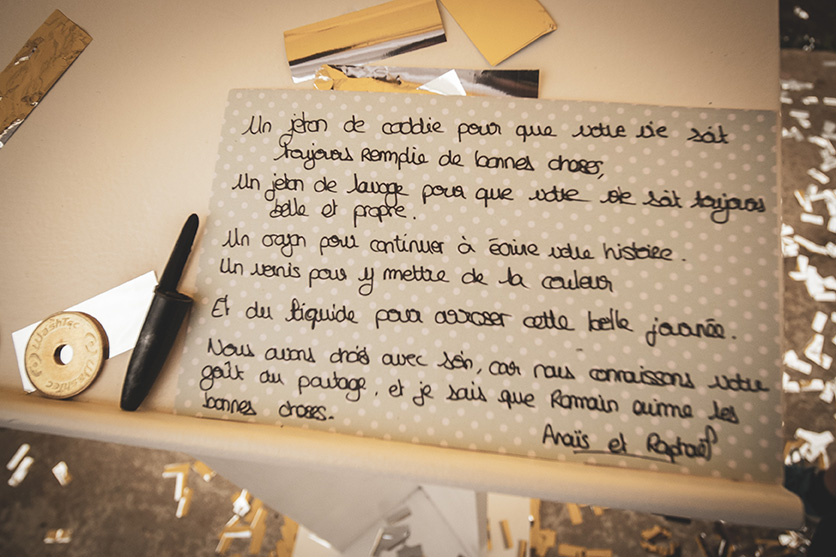 Un jeton de caddie pour que votre vie soit
toujours Remplie de bonnes choses,
Un jeton de lavage pour que votre vie soit toujours
belle et propre.
Un crayon pour continuer à écrire votre histoire.
Un vernis pour y mettre de la couleur
Et du liquide pour arroser cette belle journée.
Nous avons choisi avec soin, car nous connaissons votre
goût du partage, et je sais que Romain aime les
bonnes choses.
Anaïs et Raphaël
WashTec
WashTec